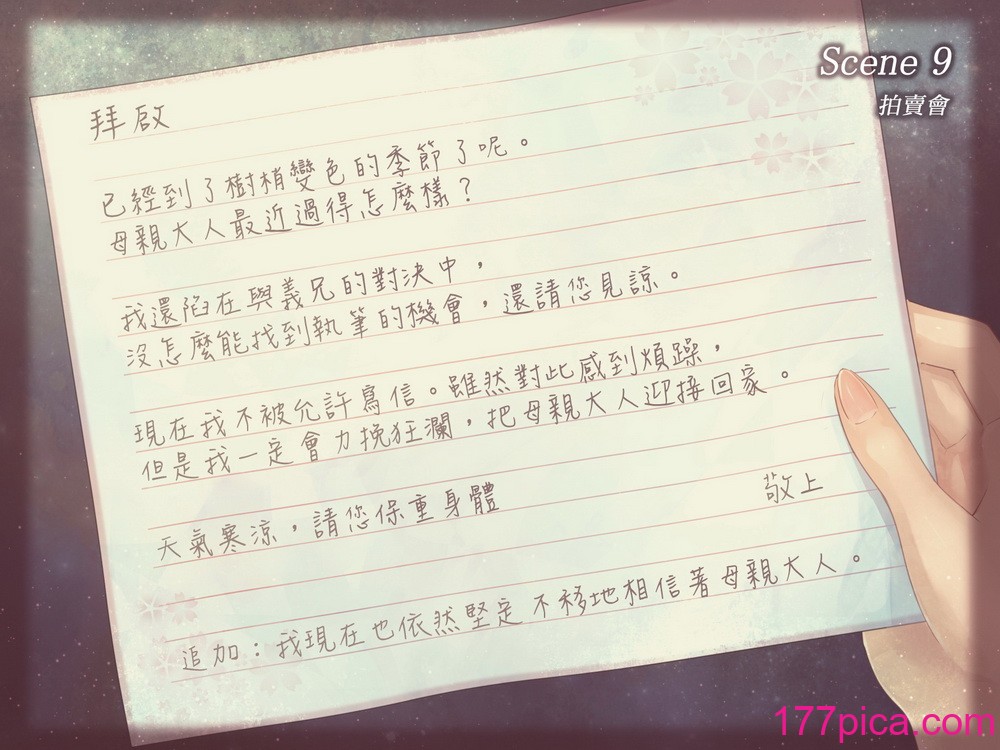 Scene 9
拍賣會
拜啟
已經到了樹梢變色的季節了呢。
母親大人最近過得怎麼樣？
我還陷在與義兄的對決中，
沒怎麼能找到執筆的機會，還請您見諒。
現在我不被允許寫信。雖然對此感到煩躁，
但是我一定會力挽狂瀾，把母親大人迎接回家。
天氣寒涼，請您保重身體
敬上
追加：我現在也依然堅定不移地相信著母親大人。
177pica.com